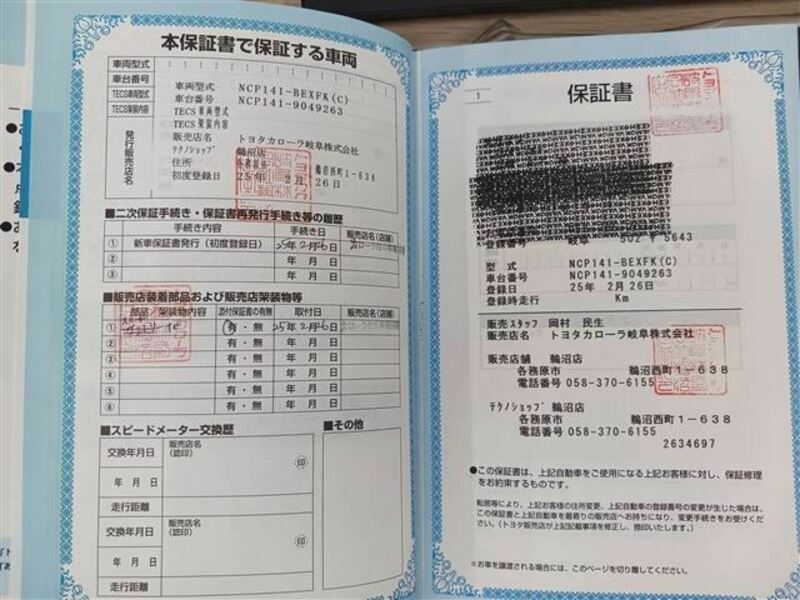 本保証書で保証する車両
車両型式
車台番号
TECS車両型式
TECS架装内容
発行販売店名
車両型式 NCP141-BEXFK(C)
車台番号 NCP141-9049263
TECS車両型式
TECS架装内容
販売店名 トヨタカローラ岐阜株式会社
テクノショップ 鵜沼店
住所 各務原市 鵜沼西町1-638
初度登録日 25年 2月26日
■二次保証手続き・保証書再発行手続き等の履歴
手続き内容 手続き日 販売店名(店舗)
① 新車保証書発行(初度登録日) 25年2月26日
② 年 月 日
③ 年 月 日
■販売店装着部品および販売店架装物等
部品/架装物内容 添付保証書の有無 取付日 販売店名(店舗)
① 有・無 25年2月26日
② 有・無 年 月 日
③ 有・無 年 月 日
④ 有・無 年 月 日
⑤ 有・無 年 月 日
⑥ 有・無 年 月 日
■スピードメーター交換歴
交換年月日 販売店名(認印)
印
年 月 日
走行距離
交換年月日 販売店名(認印)
印
年 月 日
走行距離
■その他
1
保証書
登録番号 岐阜 502 5643
型 式 NCP141-BEXFK(C)
車台番号 NCP141-9049263
登録日 25年 2月26日
登録時走行 Km
販売スタッフ 岡村 民生
販売店名 トヨタカローラ岐阜株式会社
販売店舗 鵜沼店
各務原市 鵜沼西町1-638
電話番号 058-370-6155
テクノショップ 鵜沼店
各務原市 鵜沼西町1-638
電話番号 058-370-6155
2634697
●この保証書は、上記自動車をご使用になる上記お客様に対し、保証修理
をお約束するものです。
転居等により、上記お客様の住所変更、上記自動車の登録番号の変更が生じた場合は、
この保証書と上記自動車を最寄りの販売店へお持ちになり、変更手続きをお受けくだ
さい。(トヨタ販売店が上記記載事項を修正し、捺印いたします。)
※お車を譲渡される場合には、このページを切り離してください。